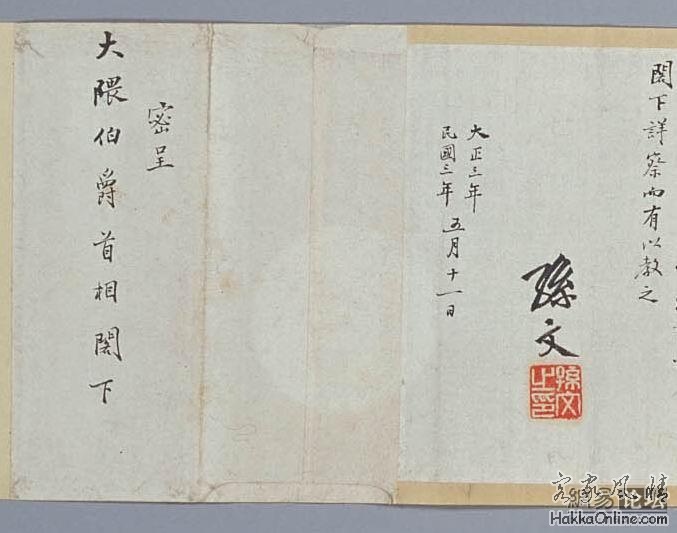 閣下詳察而有以教之
孫文
孫文之印
大正三年
民國三年五月十一日
密呈
大隈伯爵首相閣下
客家风情
网易论坛
HakkaOnline.com